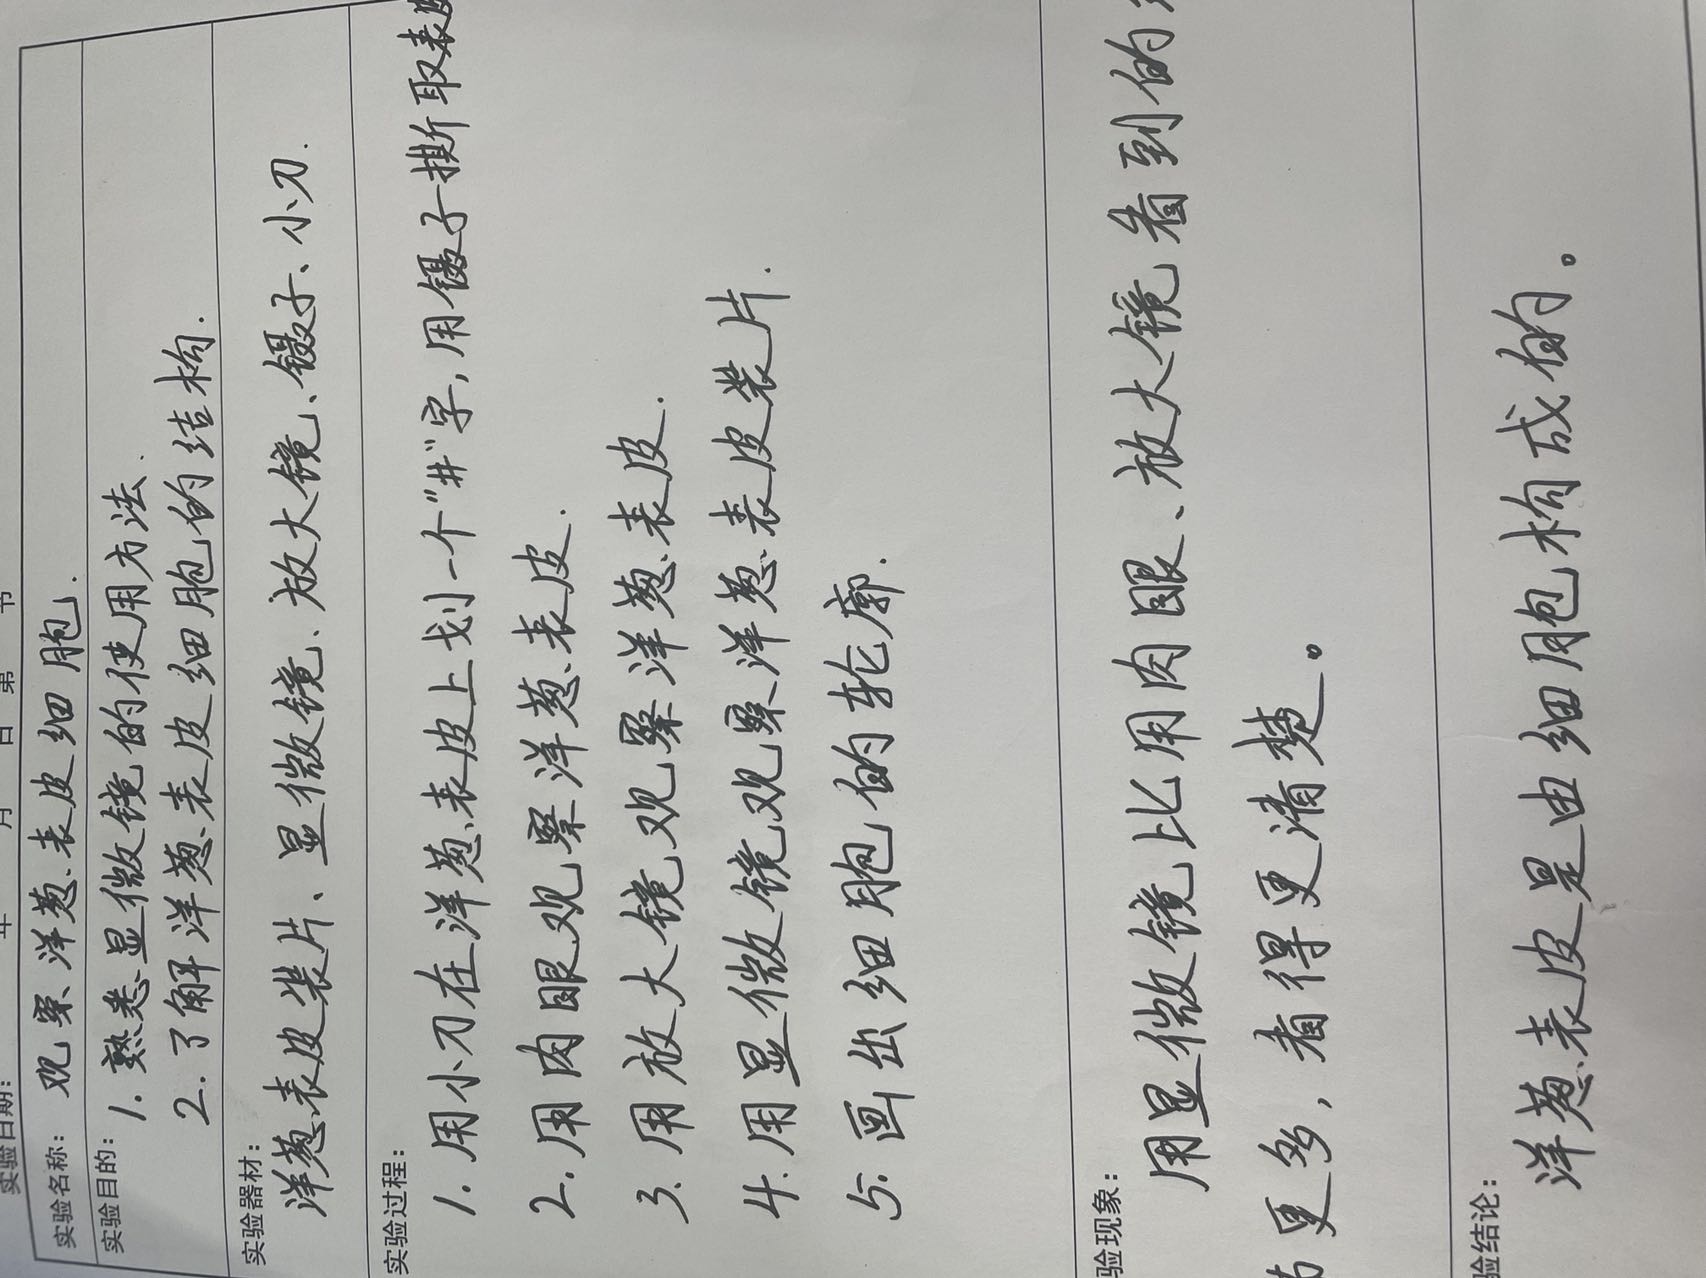 实验日期： 年 月 日 第 节
实验名称： 观察洋葱表皮细胞.
实验目的： 1. 熟悉显微镜的使用方法.
2. 了解洋葱表皮细胞的结构.
实验器材：
洋葱表皮装片、显微镜、放大镜、镊子、小刀.
实验过程：
1. 用小刀在洋葱表皮上划一个"井"字，用镊子撕取表
2. 用肉眼观察洋葱表皮.
3. 用放大镜观察洋葱表皮.
4. 用显微镜观察洋葱表皮装片.
5. 画出细胞的轮廓.
验现象：
用显微镜比用肉眼、放大镜看到的
更多，看得更清楚。
验结论：
洋葱表皮是由细胞构成的。